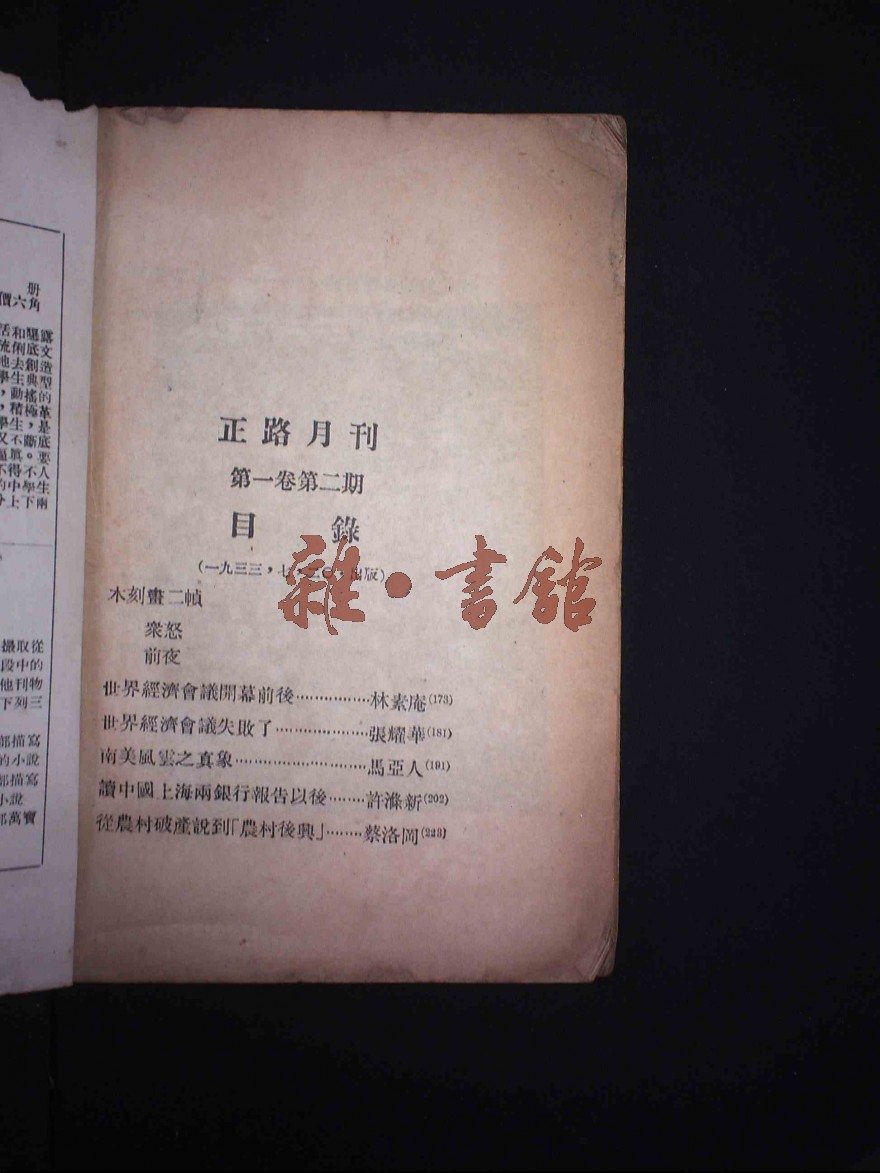 正路月刊
第一卷第二期
目 錄
(一九三三，七，二〇，出版)
木刻畫二幀
衆怒
前夜
世界經濟會議開幕前後⋯⋯⋯⋯⋯林素庵(173)
世界經濟會議失敗了⋯⋯⋯⋯⋯⋯張耀華(181)
南美風雲之真象⋯⋯⋯⋯⋯⋯⋯⋯馬亞人(191)
讀中國上海兩銀行報告以後⋯⋯⋯許滌新(202)
從農村破產說到「農村後興」⋯⋯⋯蔡洛岡(223)
雜·書館
册
價六角
活和題露
流俐底文
他去創造
學生典型
，動搖的
，積極革
學生，是
又不斷底
填。要
不得不人
的中學生
分上下兩
撮取從
段中的
他刊物
下列三
部描寫
的小說
部描寫
小說
部萬寶